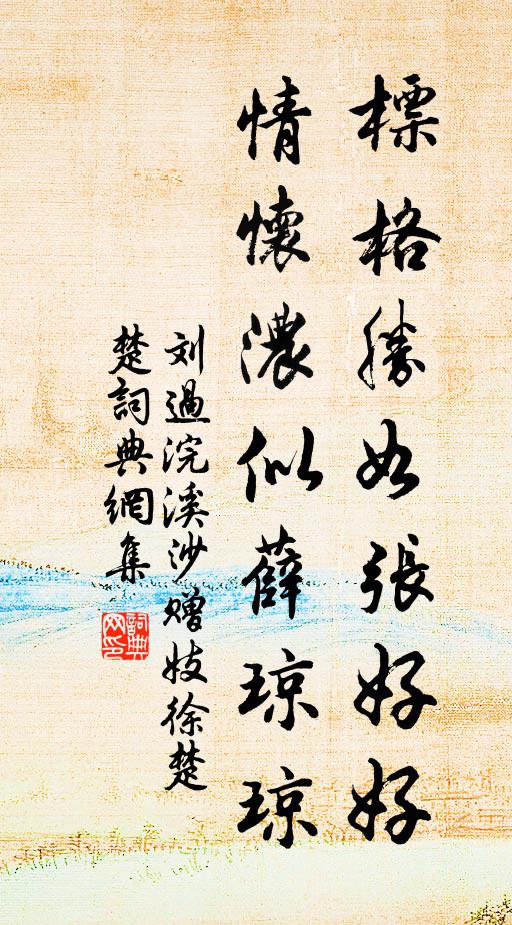 標格勝如張好好
情懷濃似薛琼琼
刘過浣溪沙贈妓徐楚
楚詞典網集
詞典
网印